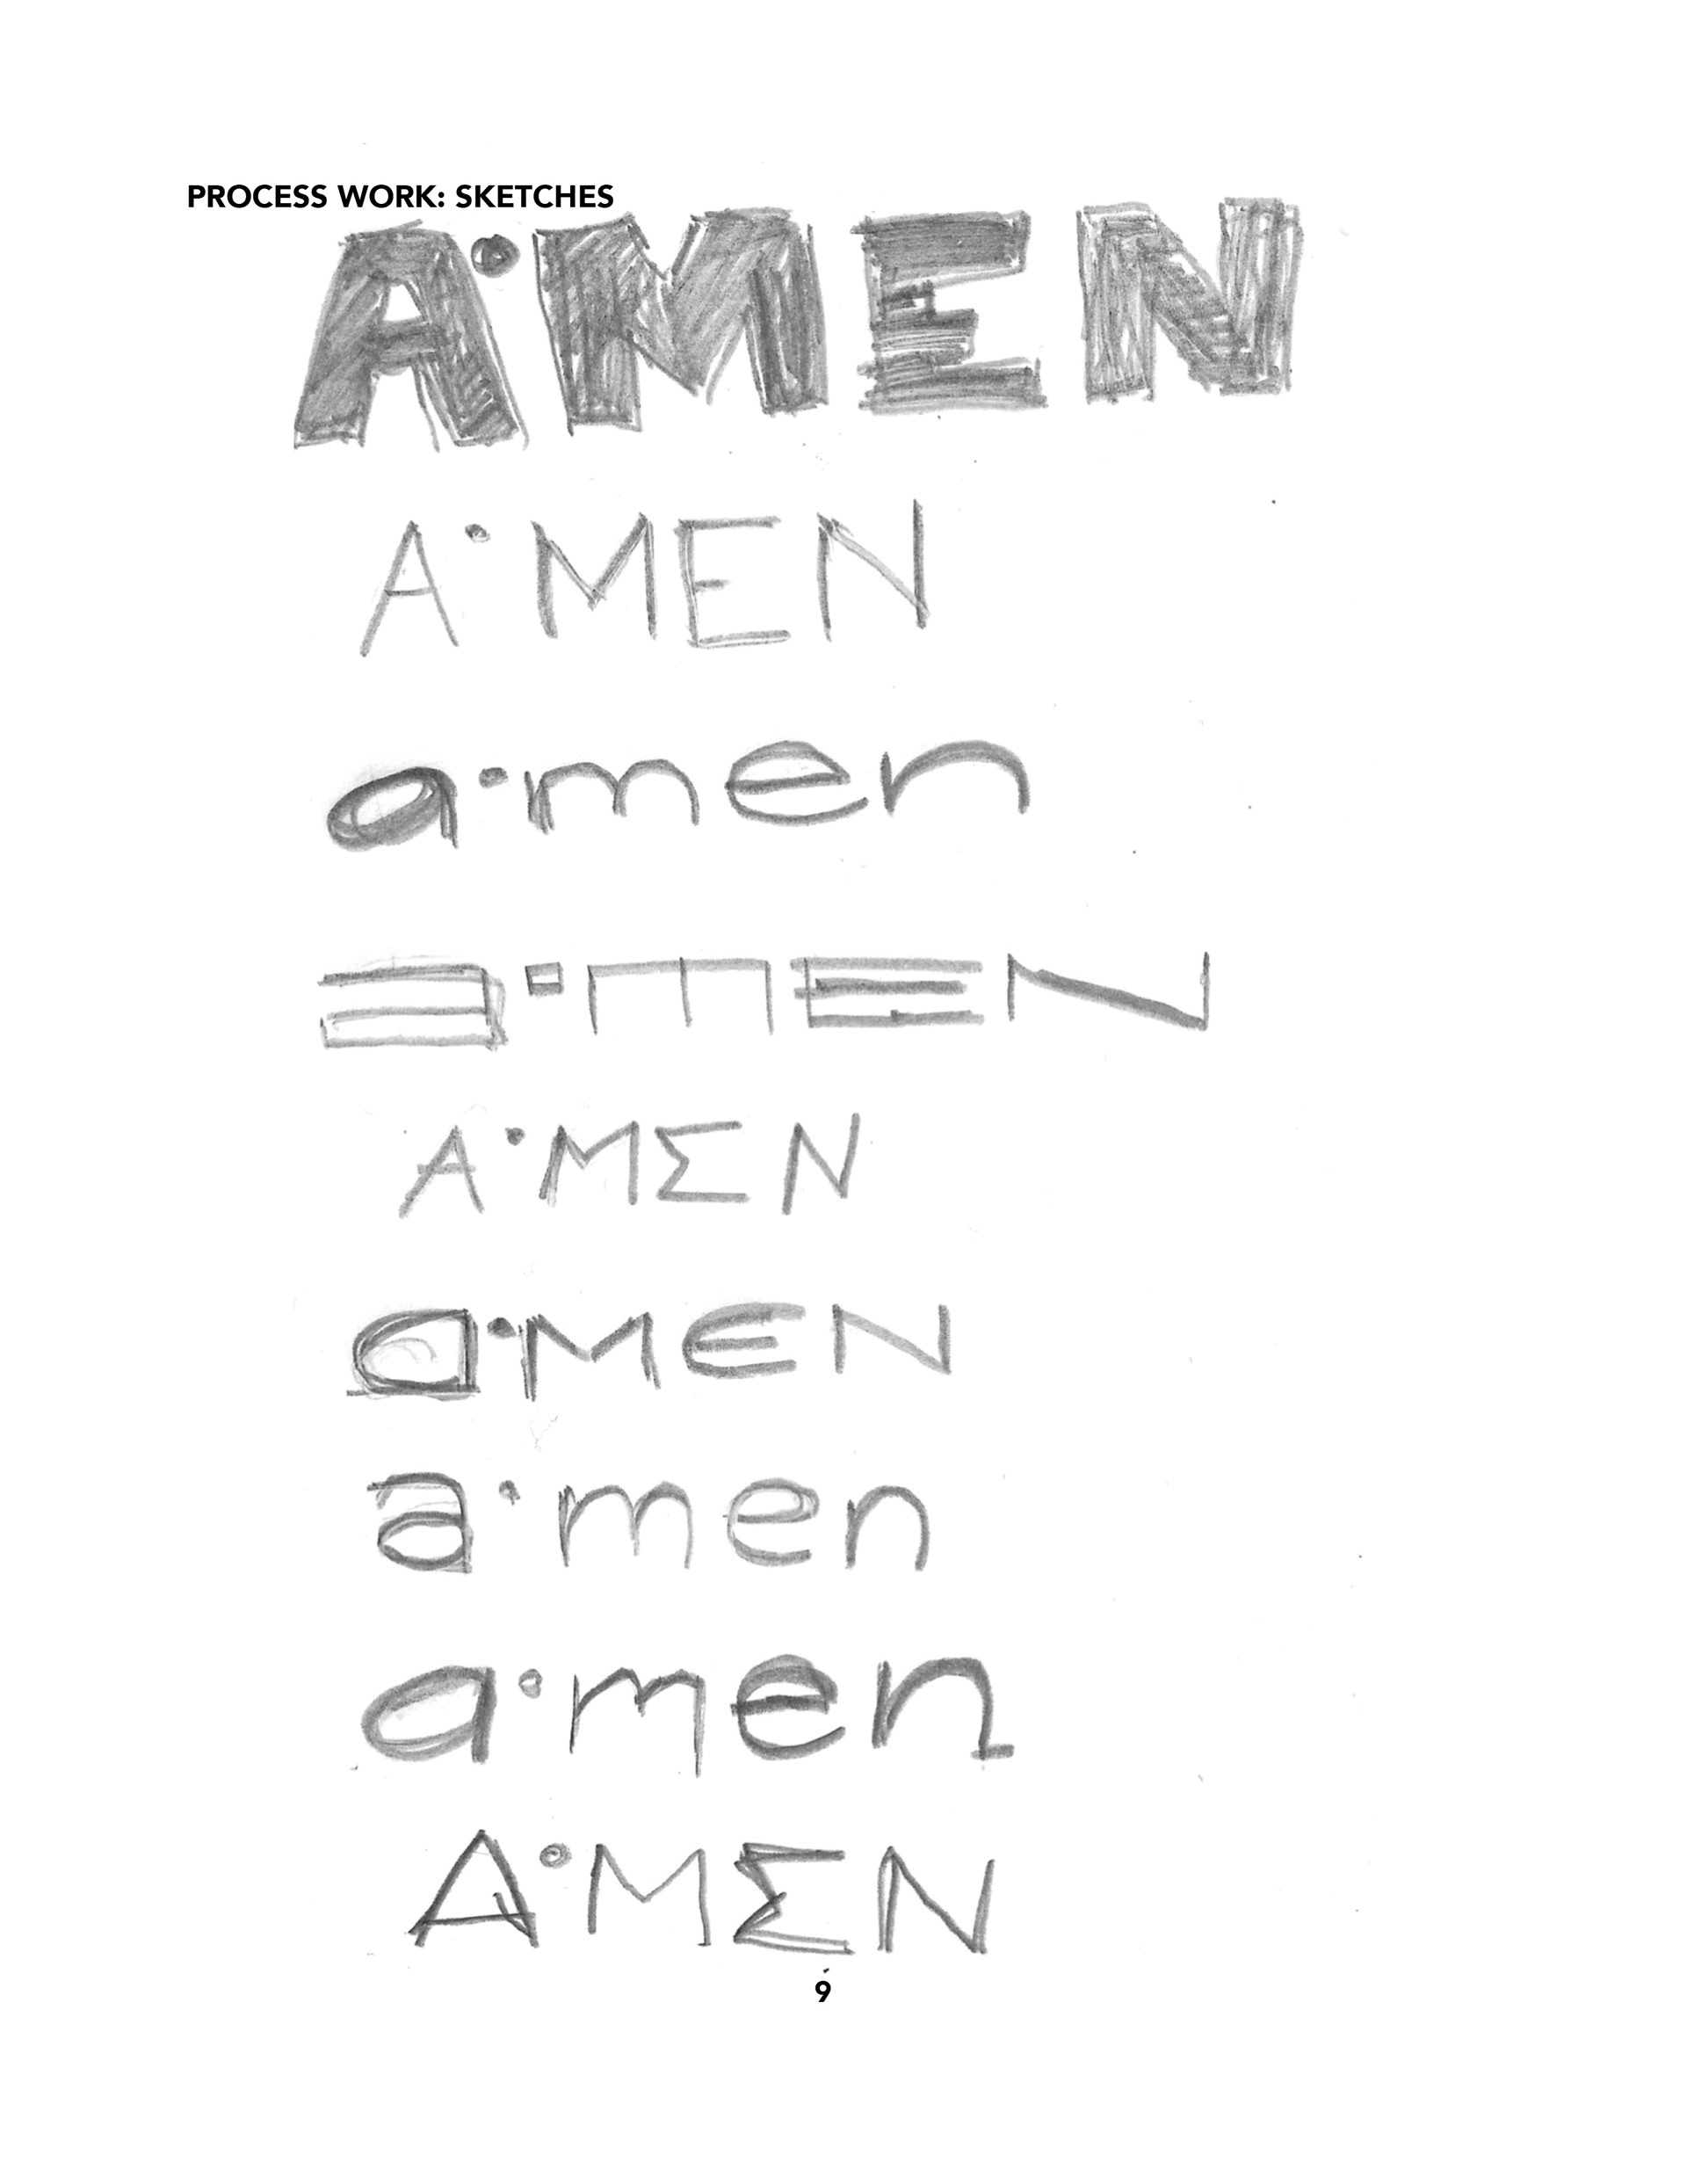 PROCESS WORK: SKETCHES
A·MEN
A·MEN
a·men
a·mEN
A·MΣN
a·MEN
a·men
a·men
A·MΣN
9